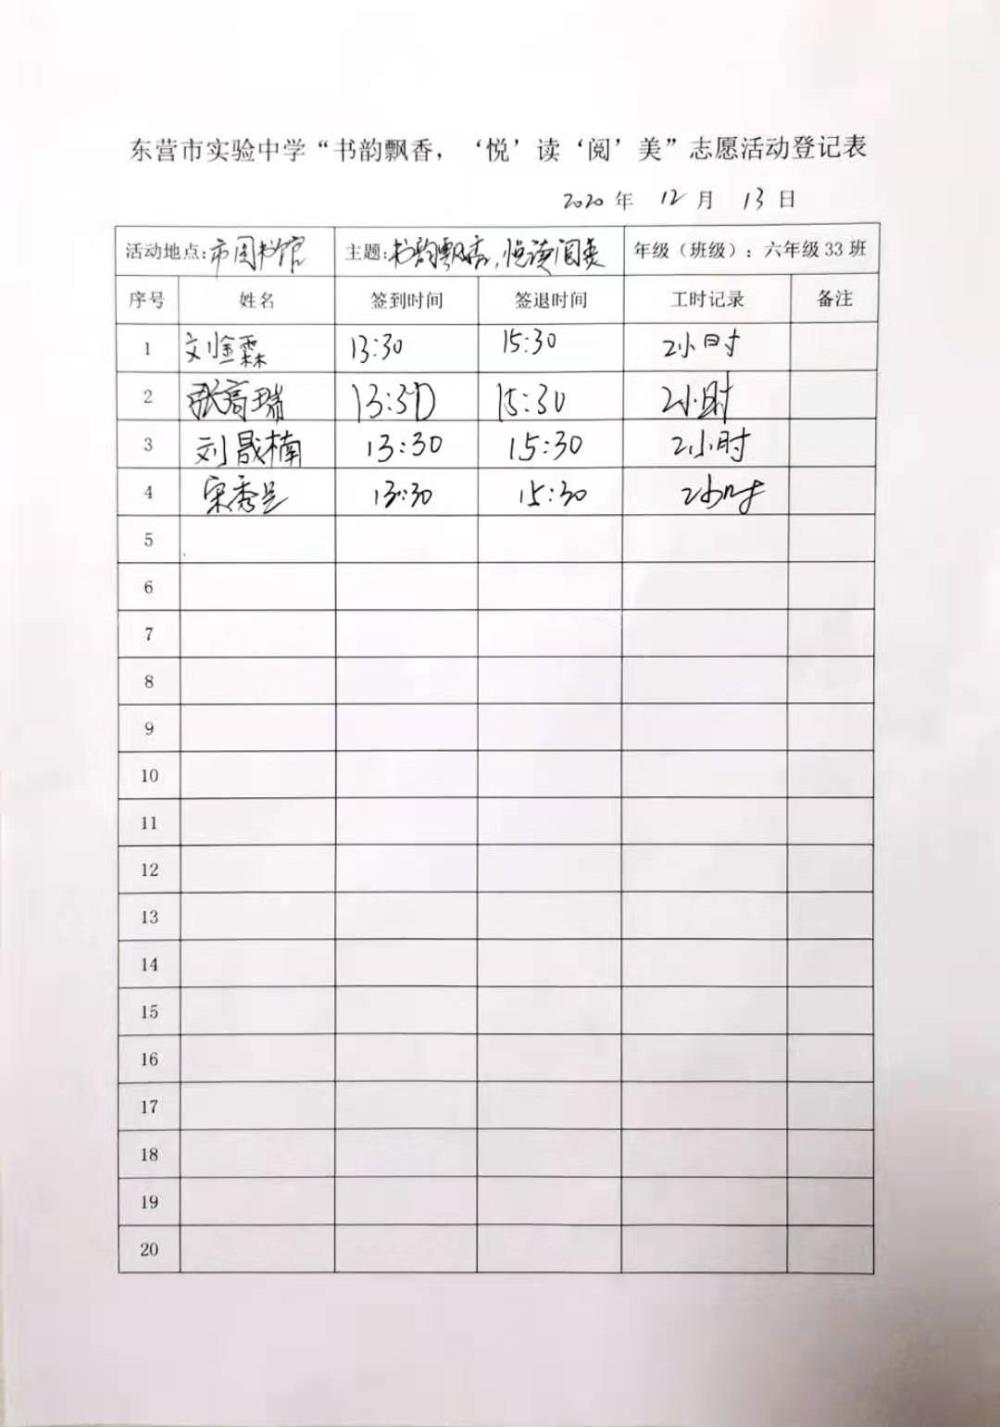 东营市实验中学“书韵飘香，‘悦’读‘阅’美”志愿活动登记表
2020 年 12 月 13 日
活动地点:市图书馆 主题:书韵飘香,悦读阅美 年级（班级）：六年级 33 班
序号 姓名 签到时间 签退时间 工时记录 备注
1 刘金霖 13:30 15:30 2小时
2 张高瑞 13:30 15:30 2小时
3 刘晟楠 13:30 15:30 2小时
4 宋秀 13:30 15:30 2小时
5
6
7
8
9
10
11
12
13
14
15
16
17
18
19
20